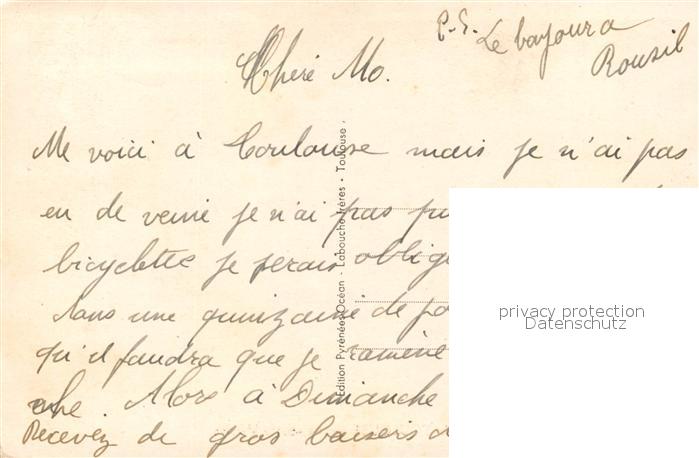 P.S. Le bonjour à
Chère Mo.
Me voici à Toulouse mais je n'ai pas
eu de veine je n'ai pas pu
bicyclette je serais oblig
dans une quinzaine de jo
qu'il faudra que je ramène
Alors à Dimanche
Recevez de gros baisers
Edition Pyrénées-Océan - Labouche Frères - Toulouse.
privacy protection
Datenschutz